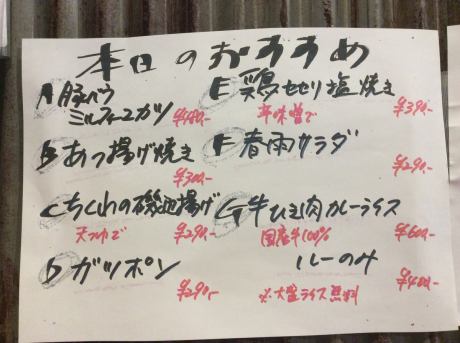 本日のおすすめ
A 豚バラ
ミルフィーユカツ
¥480-
B あつ揚げ焼き
¥300-
C ちくわの磯辺揚げ
天つゆで ¥290-
D ガツポン
¥290-
E 鶏せせり塩焼き
辛味噌で ¥390-
F 春雨サラダ
¥290-
G 牛ひき肉カレーライス
国産牛100% ¥600-
ルーのみ
※大盛ライス無料 ¥400-